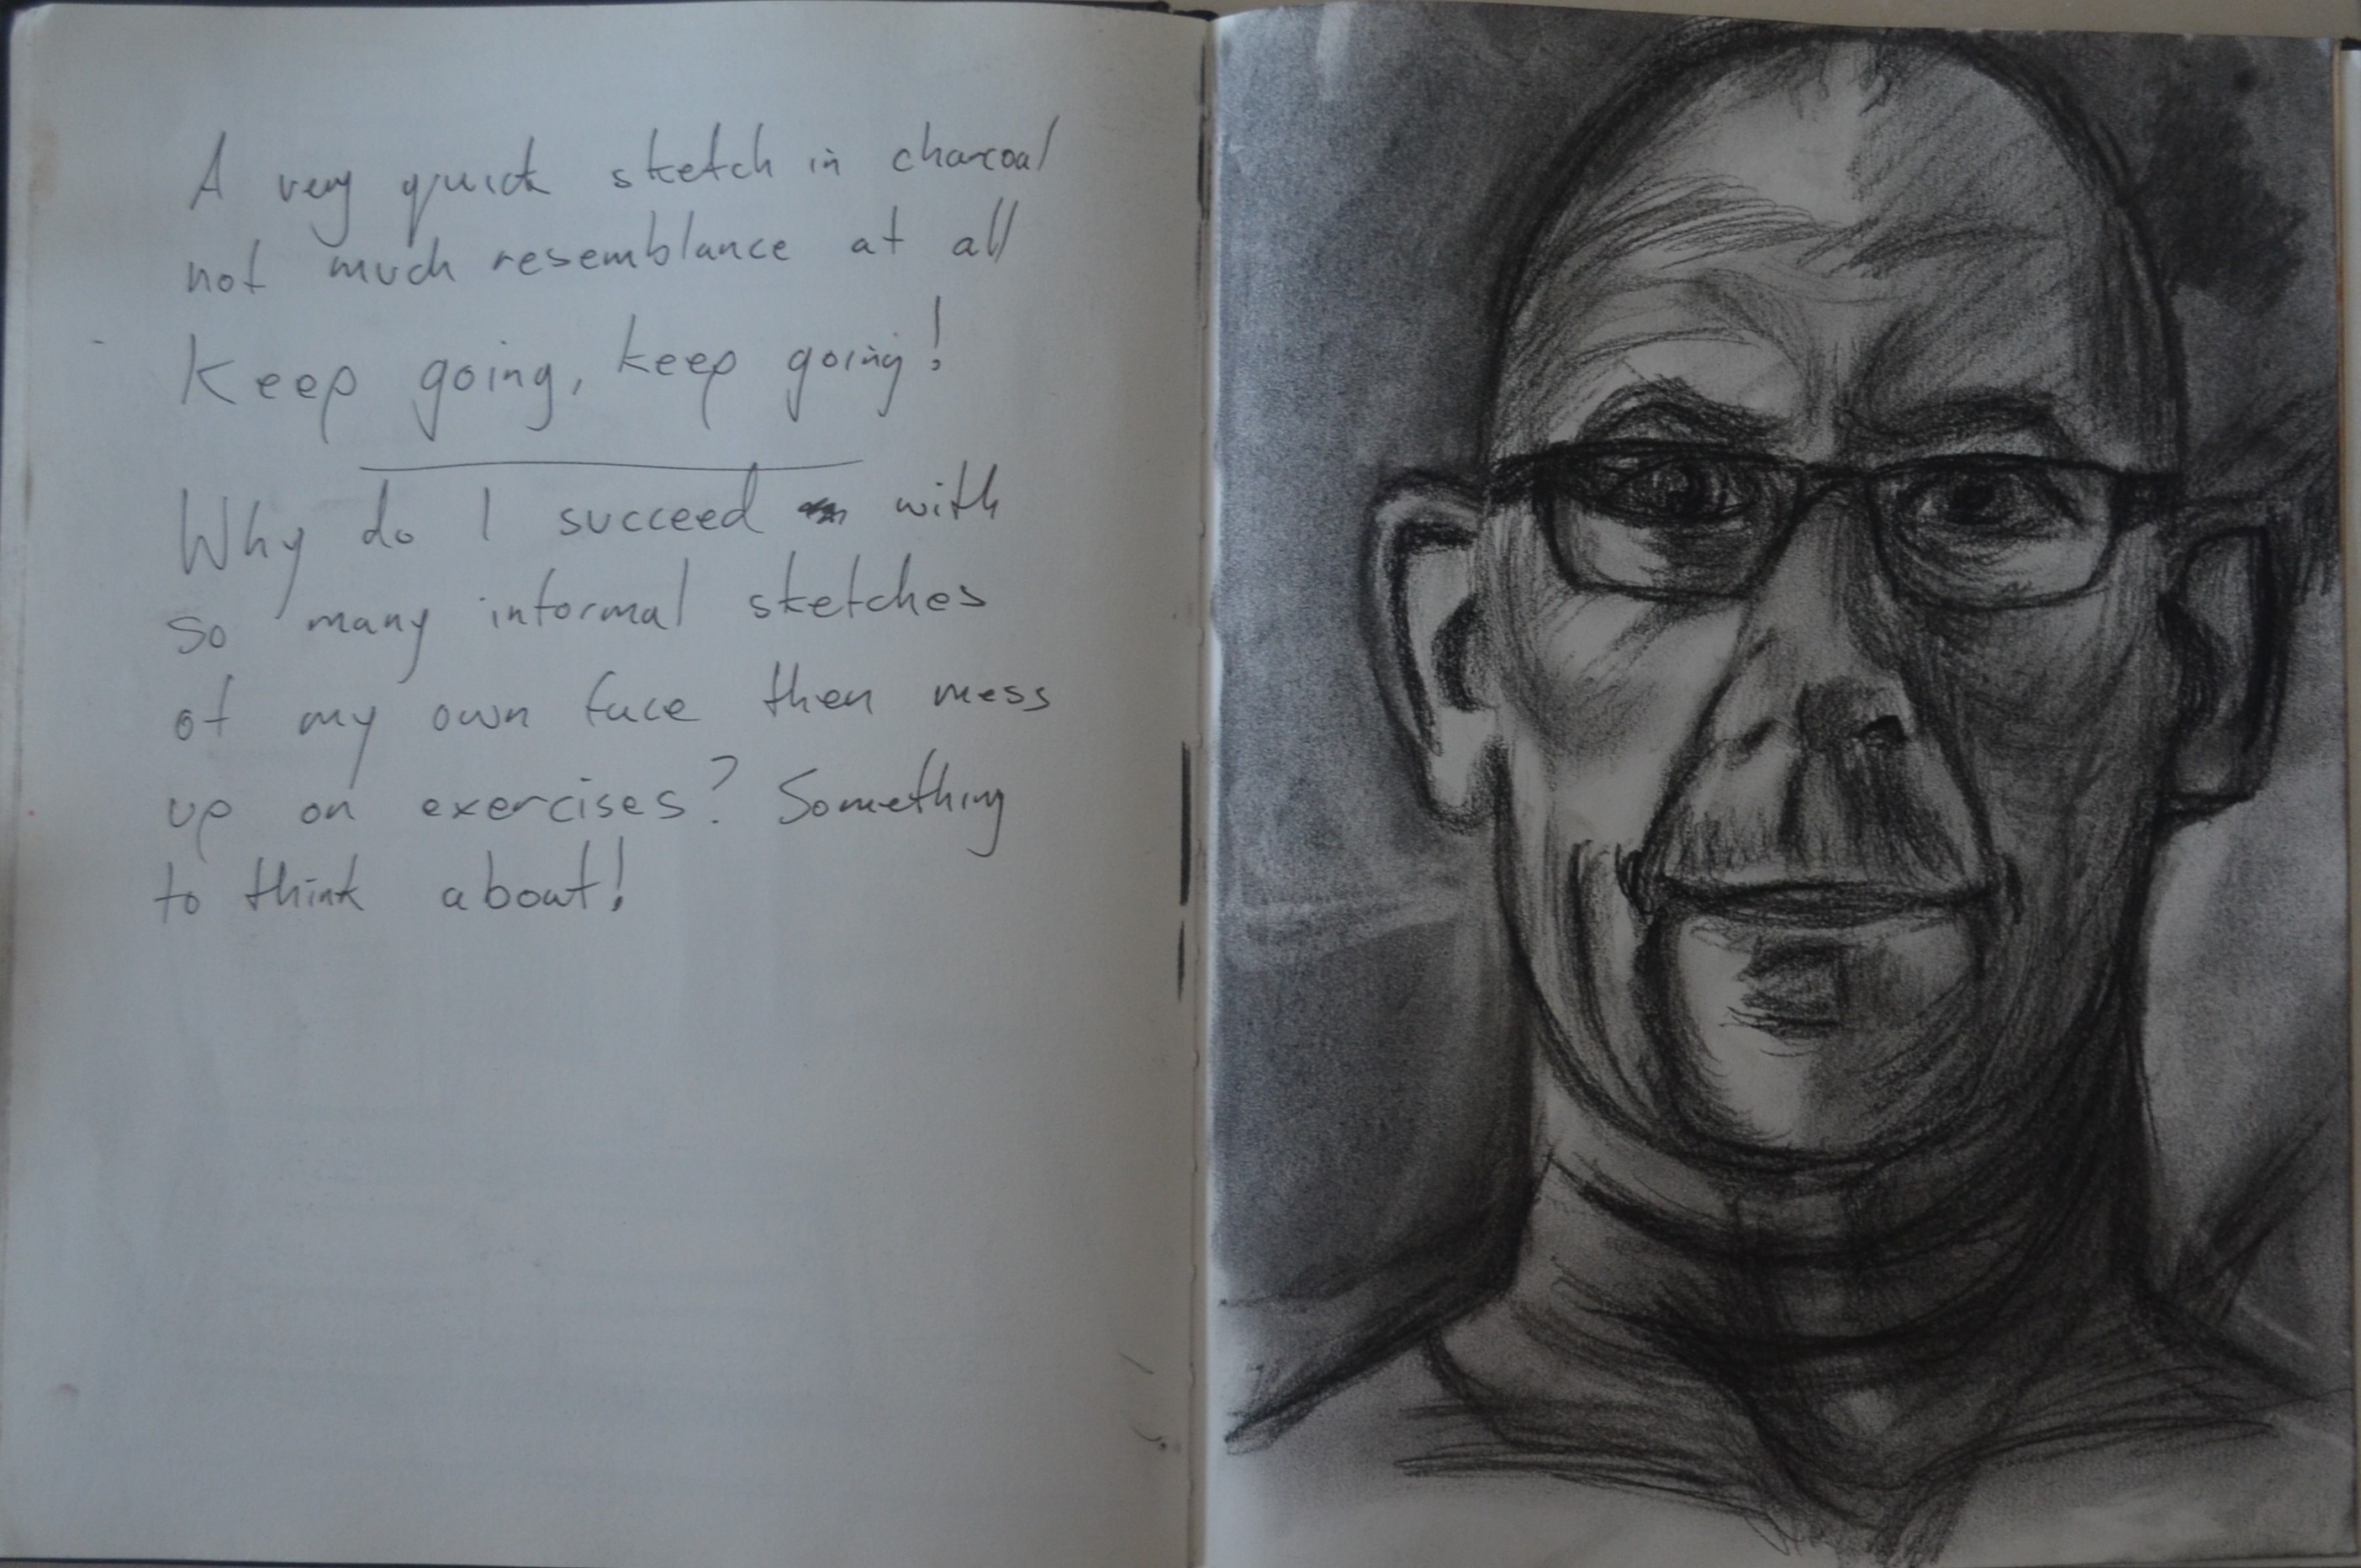 A very quick sketch in charcoal
not much resemblance at all
Keep going, keep going!
Why do I succeed with
so many informal sketches
of my own face then mess
up on exercises? Something
to think about!